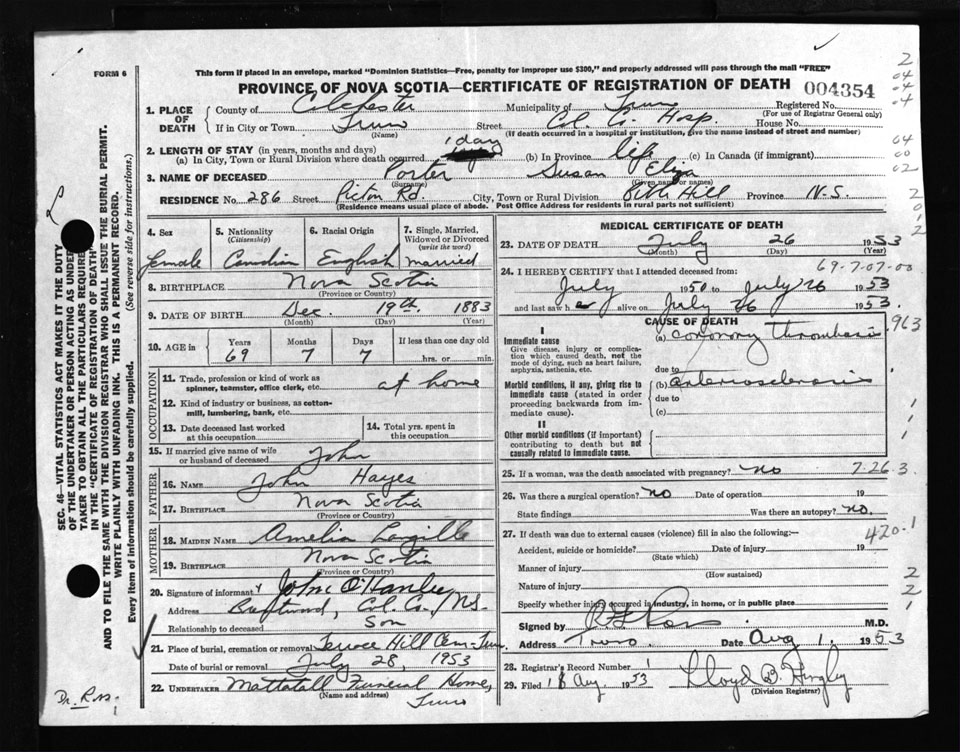 FORM 6
This form if placed in an envelope, marked "Dominion Statistics—Free, penalty for improper use $300," and properly addressed will pass through the mail "FREE"
PROVINCE OF NOVA SCOTIA—CERTIFICATE OF REGISTRATION OF DEATH 004354
1. PLACE OF DEATH { County of Colchester Municipality of Truro Registered No.
(For use of Registrar General only)
If in City or Town Truro Street Col. Co. Hosp. House No.
(Name) (If death occurred in a hospital or institution, give the name instead of street and number)
2. LENGTH OF STAY (in years, months and days)
(a) In City, Town or Rural Division where death occurred 1 day (b) In Province life (c) In Canada (if immigrant)
3. NAME OF DECEASED Porter Susan Eliza
(Surname) (Given name or names)
RESIDENCE No. 286 Street Pictou Rd. City, Town or Rural Division Bible Hill Province N.S.
(Residence means usual place of abode. Post Office Address for residents in rural parts not sufficient)
4. Sex Female
5. Nationality (Citizenship) Canadian
6. Racial Origin English
7. Single, Married, Widowed or Divorced (write the word) married
8. BIRTHPLACE Nova Scotia
(Province or Country)
9. DATE OF BIRTH Dec. 19th. 1883
(Month) (Day) (Year)
10. AGE in Years 69 Months 7 Days 7 If less than one day old hrs. or min.
OCCUPATION
11. Trade, profession or kind of work as spinner, teamster, office clerk, etc. at home
12. Kind of industry or business, as cotton-mill, lumbering, bank, etc.
13. Date deceased last worked at this occupation
14. Total yrs. spent in this occupation
15. If married give name of wife or husband of deceased John
FATHER
16. NAME John Hayes
17. BIRTHPLACE Nova Scotia
(Province or Country)
MOTHER
18. MAIDEN NAME Amelia
19. BIRTHPLACE Nova Scotia
(Province or Country)
20. Signature of informant John O'Hanley
Address Col. Co. N.S.
Relationship to deceased Son
21. Place of burial, cremation or removal Terrace Hill Cem- Truro
Date of burial or removal July 28, 1953
22. UNDERTAKER Mattatall Funeral Home,
(Name and address) Truro
MEDICAL CERTIFICATE OF DEATH
23. DATE OF DEATH July 26 1953
(Month) (Day) (Year)
69-7-07-00
24. I HEREBY CERTIFY that I attended deceased from:
July 1950 to July 26 1953
and last saw her alive on July 26 1953.
CAUSE OF DEATH
I
Immediate cause
Give disease, injury or complication which caused death, not the mode of dying, such as heart failure, asphyxia, asthenia, etc.
(a) coronary thrombosis
due to
Morbid conditions, if any, giving rise to immediate cause (stated in order proceeding backwards from immediate cause).
(b) arteriosclerosis
due to
(c)
II
Other morbid conditions (if important) contributing to death but not causally related to immediate cause.
25. If a woman, was the death associated with pregnancy? no 7-26 3
26. Was there a surgical operation? no Date of operation 19
State findings Was there an autopsy? no.
27. If death was due to external causes (violence) fill in also the following:— 420-1
Accident, suicide or homicide? Date of injury 19
(State which)
Manner of injury
(How sustained)
Nature of injury
Specify whether injury occurred in industry, in home, or in public place
Signed by M.D.
Address Truro Date Aug 1. 1953
28. Registrar's Record Number 1
29. Filed 18 Aug. 1953 Lloyd B. Hingley
(Division Registrar)
SEC. 46—VITAL STATISTICS ACT MAKES IT THE DUTY
OF THE UNDERTAKER OR PERSON ACTING AS UNDER-
TAKER TO OBTAIN ALL THE PARTICULARS REQUIRED
IN THE "CERTIFICATE OF REGISTRATION OF DEATH"
AND TO FILE THE SAME WITH THE DIVISION REGISTRAR WHO SHALL ISSUE THE BURIAL PERMIT.
WRITE PLAINLY WITH UNFADING INK. THIS IS A PERMANENT RECORD.
Every item of information should be carefully supplied. (See reverse side for instructions.)
Dr. Ross.
2
04
04
04
64
00
02
2
0
2
963
1
1
1
2
2
1